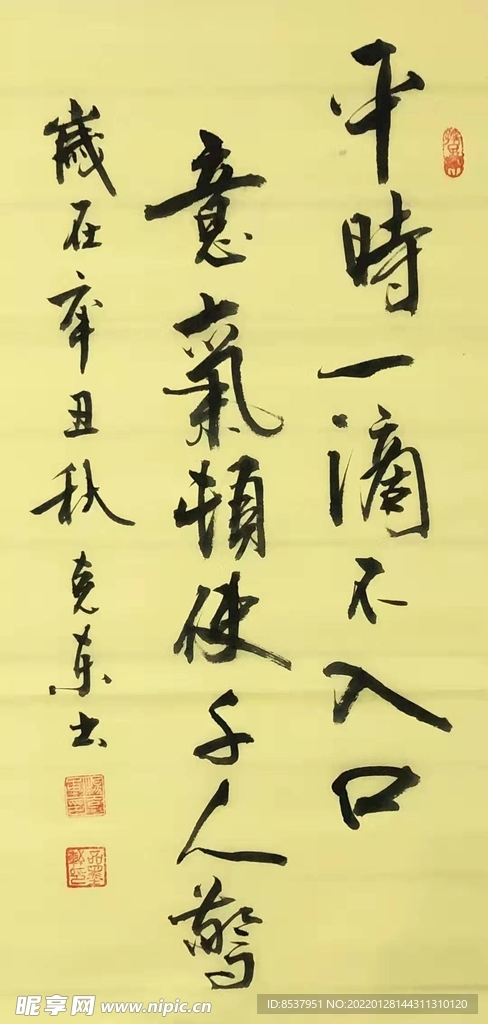 平時一滴不入口
意氣頓使千人驚
歲在辛丑秋 克东书
昵享网 www.nipic.cn
ID:8537951 NO:20220128144311310120